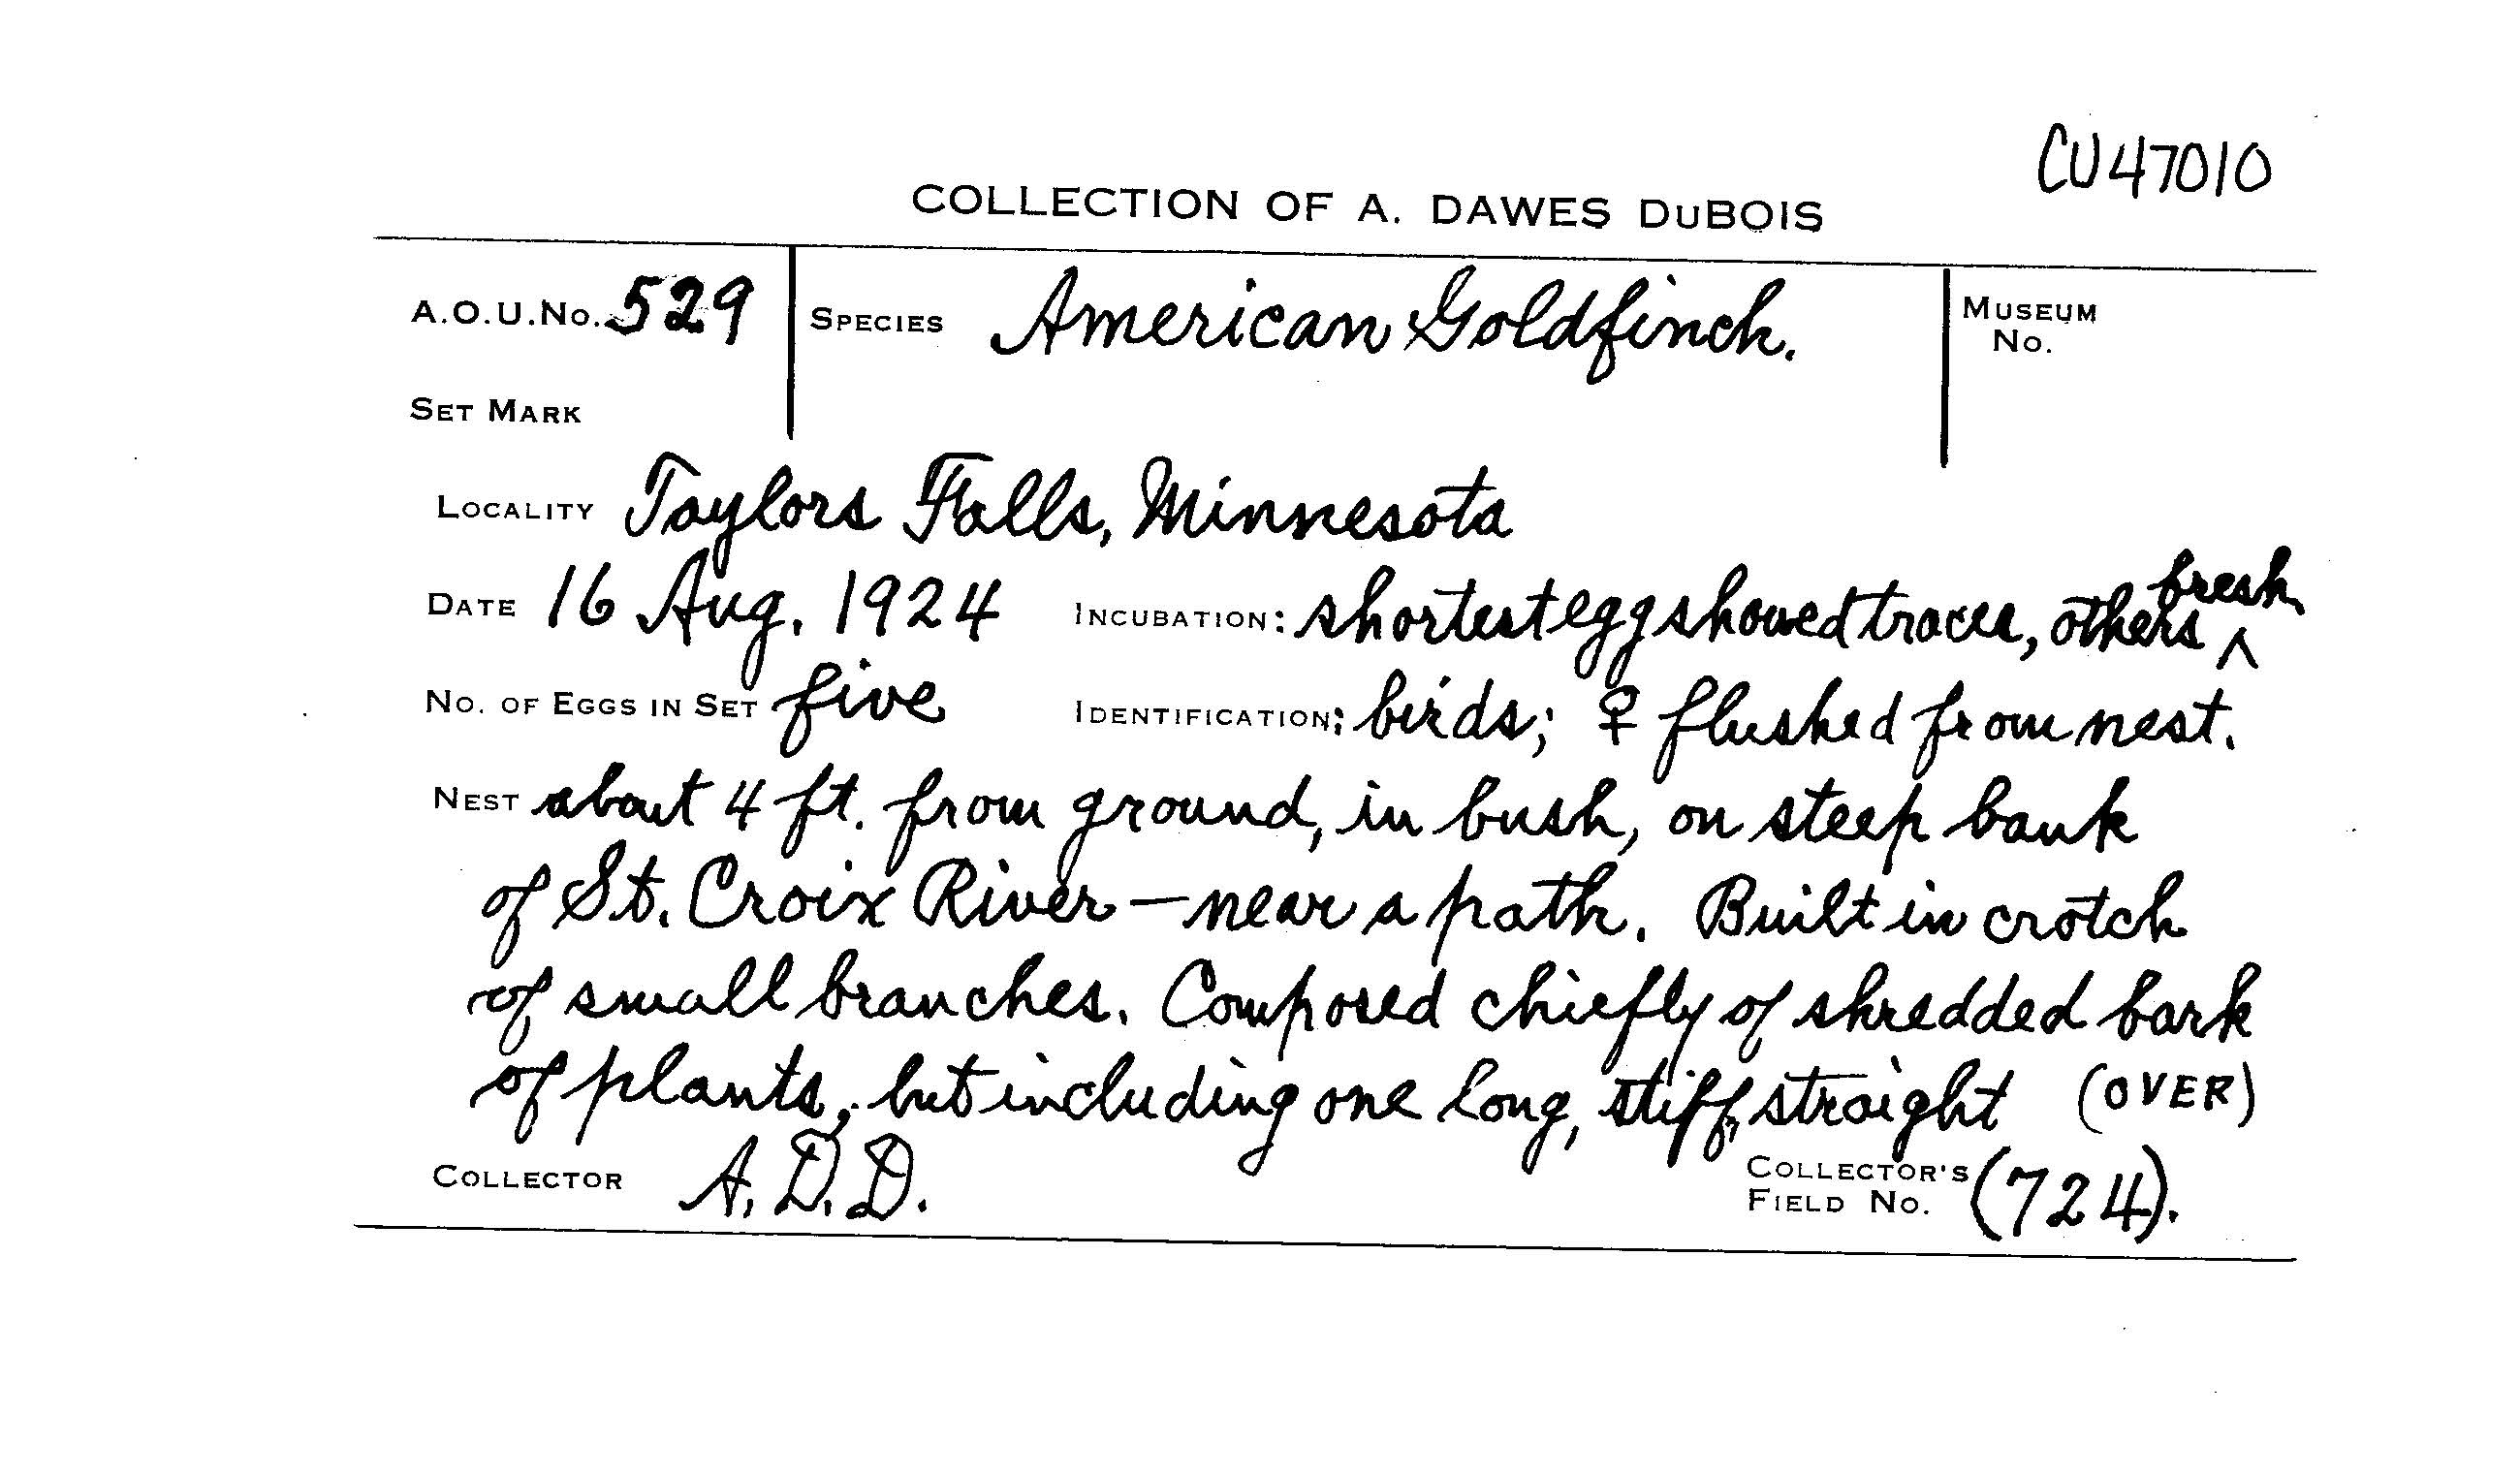 CU47010
COLLECTION OF A. DAWES DuBOIS
A.O.U.No. 529 SPECIES American Goldfinch. MUSEUM No.
SET MARK
LOCALITY Taylors Falls, Minnesota
DATE 16 Aug. 1924 INCUBATION: shortest egg showed traces, others ^ fresh.
NO. OF EGGS IN SET five IDENTIFICATION: birds; ♀ flushed from nest.
NEST about 4 ft. from ground, in bush, on steep bank
of St. Croix River — near a path. Built in crotch
of small branches. Composed chiefly of shredded bark
of plants, but including one long, stiff, straight (OVER)
COLLECTOR A.D.D. COLLECTOR'S FIELD NO. (724).